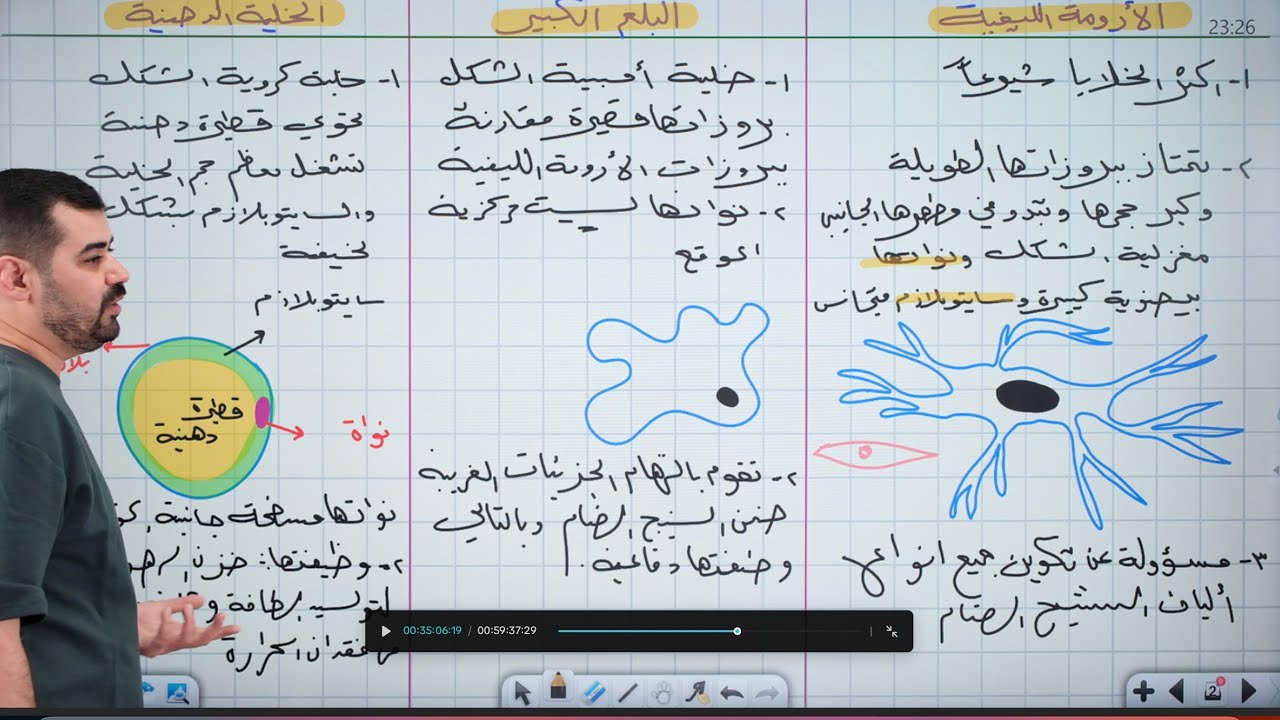 الأرومة الليفية
23:26
١- اكثر الخلايا شيوعاً
٢- تمتاز ببروزاتها الطويلة
وكبر حجمها وتبدو في مظهرها الجانبي
مغزلية الشكل ونواتها
بيضوية كبيرة وسايتوبلازم متجانس
٣- مسؤولة عن تكوين جميع انواع
ألياف النسيج الضام
البلعم الكبير
١- خلية أميبية الشكل
بروزاتها قصيرة مقارنة
ببروزات الأرومة الليفية
٢- نواتها ليست مركزية
الموقع
٢- تقوم بالتهام الجزيئات الغريبة
ضمن النسيج الضام وبالتالي
وظيفتها دفاعية.
الخلية الدهنية
١- خلية كروية الشكل
تحتوي قطرة دهنية
تشغل معظم حجم الخلية
والسايتوبلازم بشكل
سايتوبلازم
قطرة
دهنية
نواة
نواتها مسطحة جانبية
٢- وظيفتها: خزن
لتوليد الطاقة
فقدان الحرارة
00:35:06:19 / 00:59:37:29
2